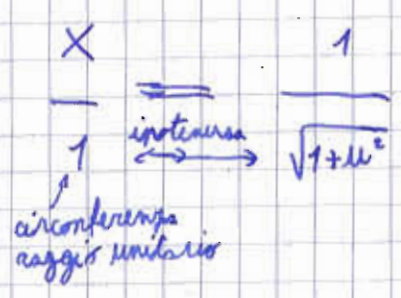 X/1 = 1/√(1+u²)
ipotenusa
circonferenza
raggio unitario